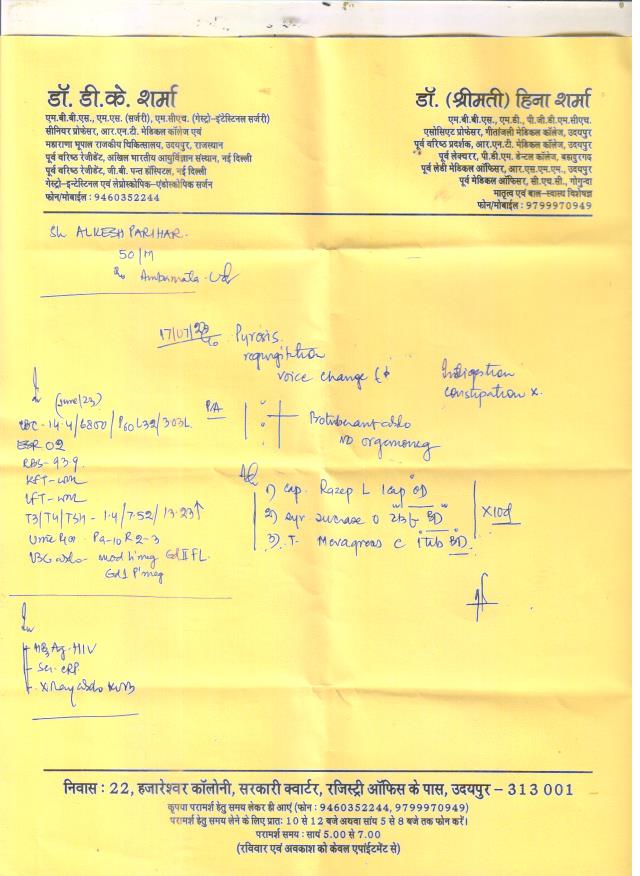 डॉ. डी.के. शर्मा
एम.बी.बी.एस., एम.एस. (सर्जरी), एम.सीएच. (गेस्ट्रो-इंटेस्टिनल सर्जरी)
सीनियर प्रोफेसर, आर.एन.टी. मेडिकल कॉलेज एवं
महाराणा भूपाल राजकीय चिकित्सालय, उदयपुर, राजस्थान
पूर्व वरिष्ठ रेजीडेंट, अखिल भारतीय आयुर्विज्ञान संस्थान, नई दिल्ली
पूर्व वरिष्ठ रेजीडेंट, जी.बी. पन्त हॉस्पिटल, नई दिल्ली
गेस्ट्रो-इन्टेस्टिनल एवं लेप्रोस्कोपिक-एंडोस्कोपिक सर्जन
फोन/मोबाईल : 9460352244
डॉ. (श्रीमती) हिना शर्मा
एम.बी.बी.एस., एम.डी., पी.जी.डी.एम.सीएच.
एसोसिएट प्रोफेसर, गीतांजली मेडिकल कॉलेज, उदयपुर
पूर्व वरिष्ठ प्रदर्शक, आर.एन.टी. मेडिकल कॉलेज, उदयपुर
पूर्व लेक्चरर, पी.डी.एम. डेन्टल कॉलेज, बहादुरगढ़
पूर्व लेडी मेडिकल ऑफिसर, आर.एस.एम.एम., उदयपुर
पूर्व मेडिकल ऑफिसर, सी.एच.सी., गोगुन्दा
मातृत्व एवं बाल-स्वास्थ्य विशेषज्ञ
फोन/मोबाईल : 9799970949
Sh ALKESH PARIHAR.
50/M
Ambamata
17/07/23
Pyrosis.
regurgitation
voice change
Indigestion
constipation x.
(June/23)
CBC - 14.4/6800/P60 L32/303L
ESR 02
RBS - 93.9.
KFT - wnl
LFT - wnl
T3/T4/TSH - 1.4/7.52/13.23↑
P/A
Protuberant abdo
NO organomeg
1) Cap. Razep L 1cap OD
2) Syr. Sucrase O 2tsf BD
3) T- Mevagross C 1 tab BD.
X10d
Urine P4-10 R 2-3
USG abdo - mod h'meg Gd II FL.
Gd1 P'meg
HBsAg. HIV
Se. CRP
X Ray abdo KUB
निवास : 22, हजारेश्वर कॉलोनी, सरकारी क्वार्टर, रजिस्ट्री ऑफिस के पास, उदयपुर – 313 001
कृपया परामर्श हेतु समय लेकर ही आएं (फोन : 9460352244, 9799970949)
परामर्श हेतु समय लेने के लिए प्रातः 10 से 12 बजे अथवा सांय 5 से 8 बजे तक फोन करें।
परामर्श समय : सायं 5.00 से 7.00
(रविवार एवं अवकाश को केवल एपॉईंटमेंट से)